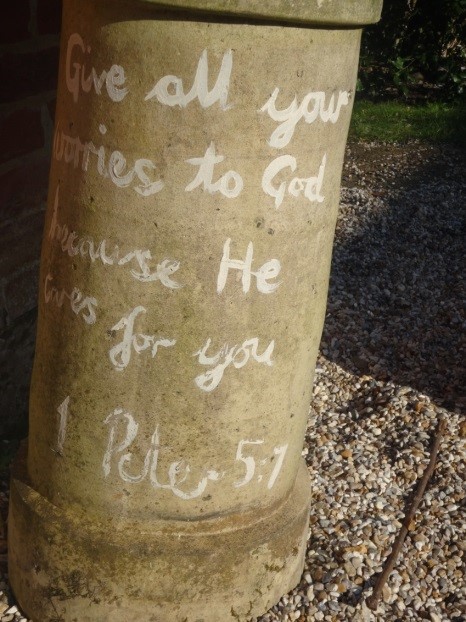 Give all your
worries to God
because He
cares for you
1 Peter 5:7